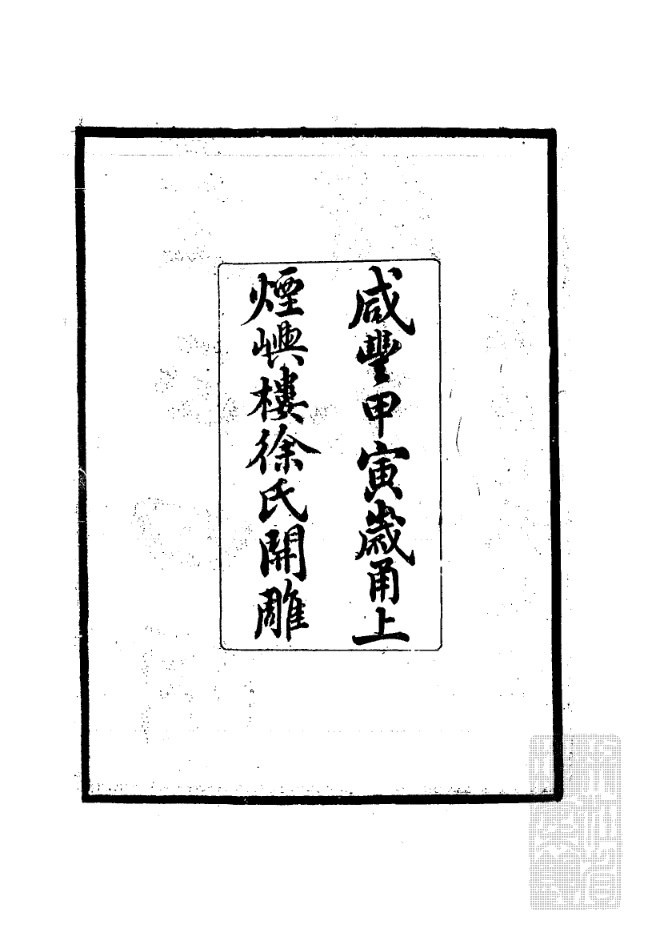 咸豐甲寅歲甬上
煙嶼樓徐氏開雕